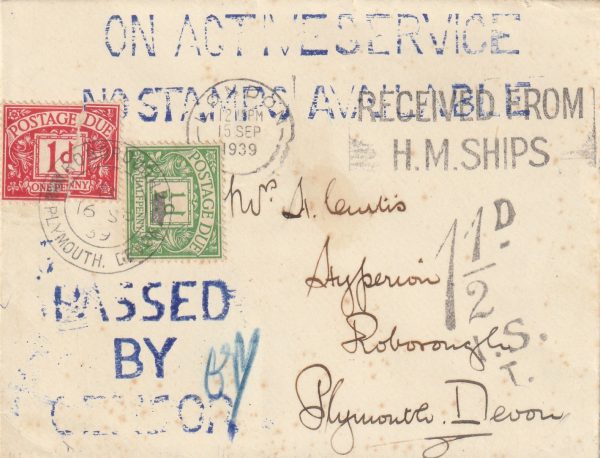 ON ACTIVE SERVICE
NO STAMPS AVAILABLE
RECEIVED FROM
H.M. SHIPS
12 PM
15 SEP
1939
POSTAGE DUE
1d
ONE PENNY
16 S
39
PLYMOUTH.
POSTAGE DUE
HALFPENNY
Mrs A. Curtis
Hyperion
Roborough
Plymouth. Devon
1 1/2 D
T.
PASSED
BY
CENSOR